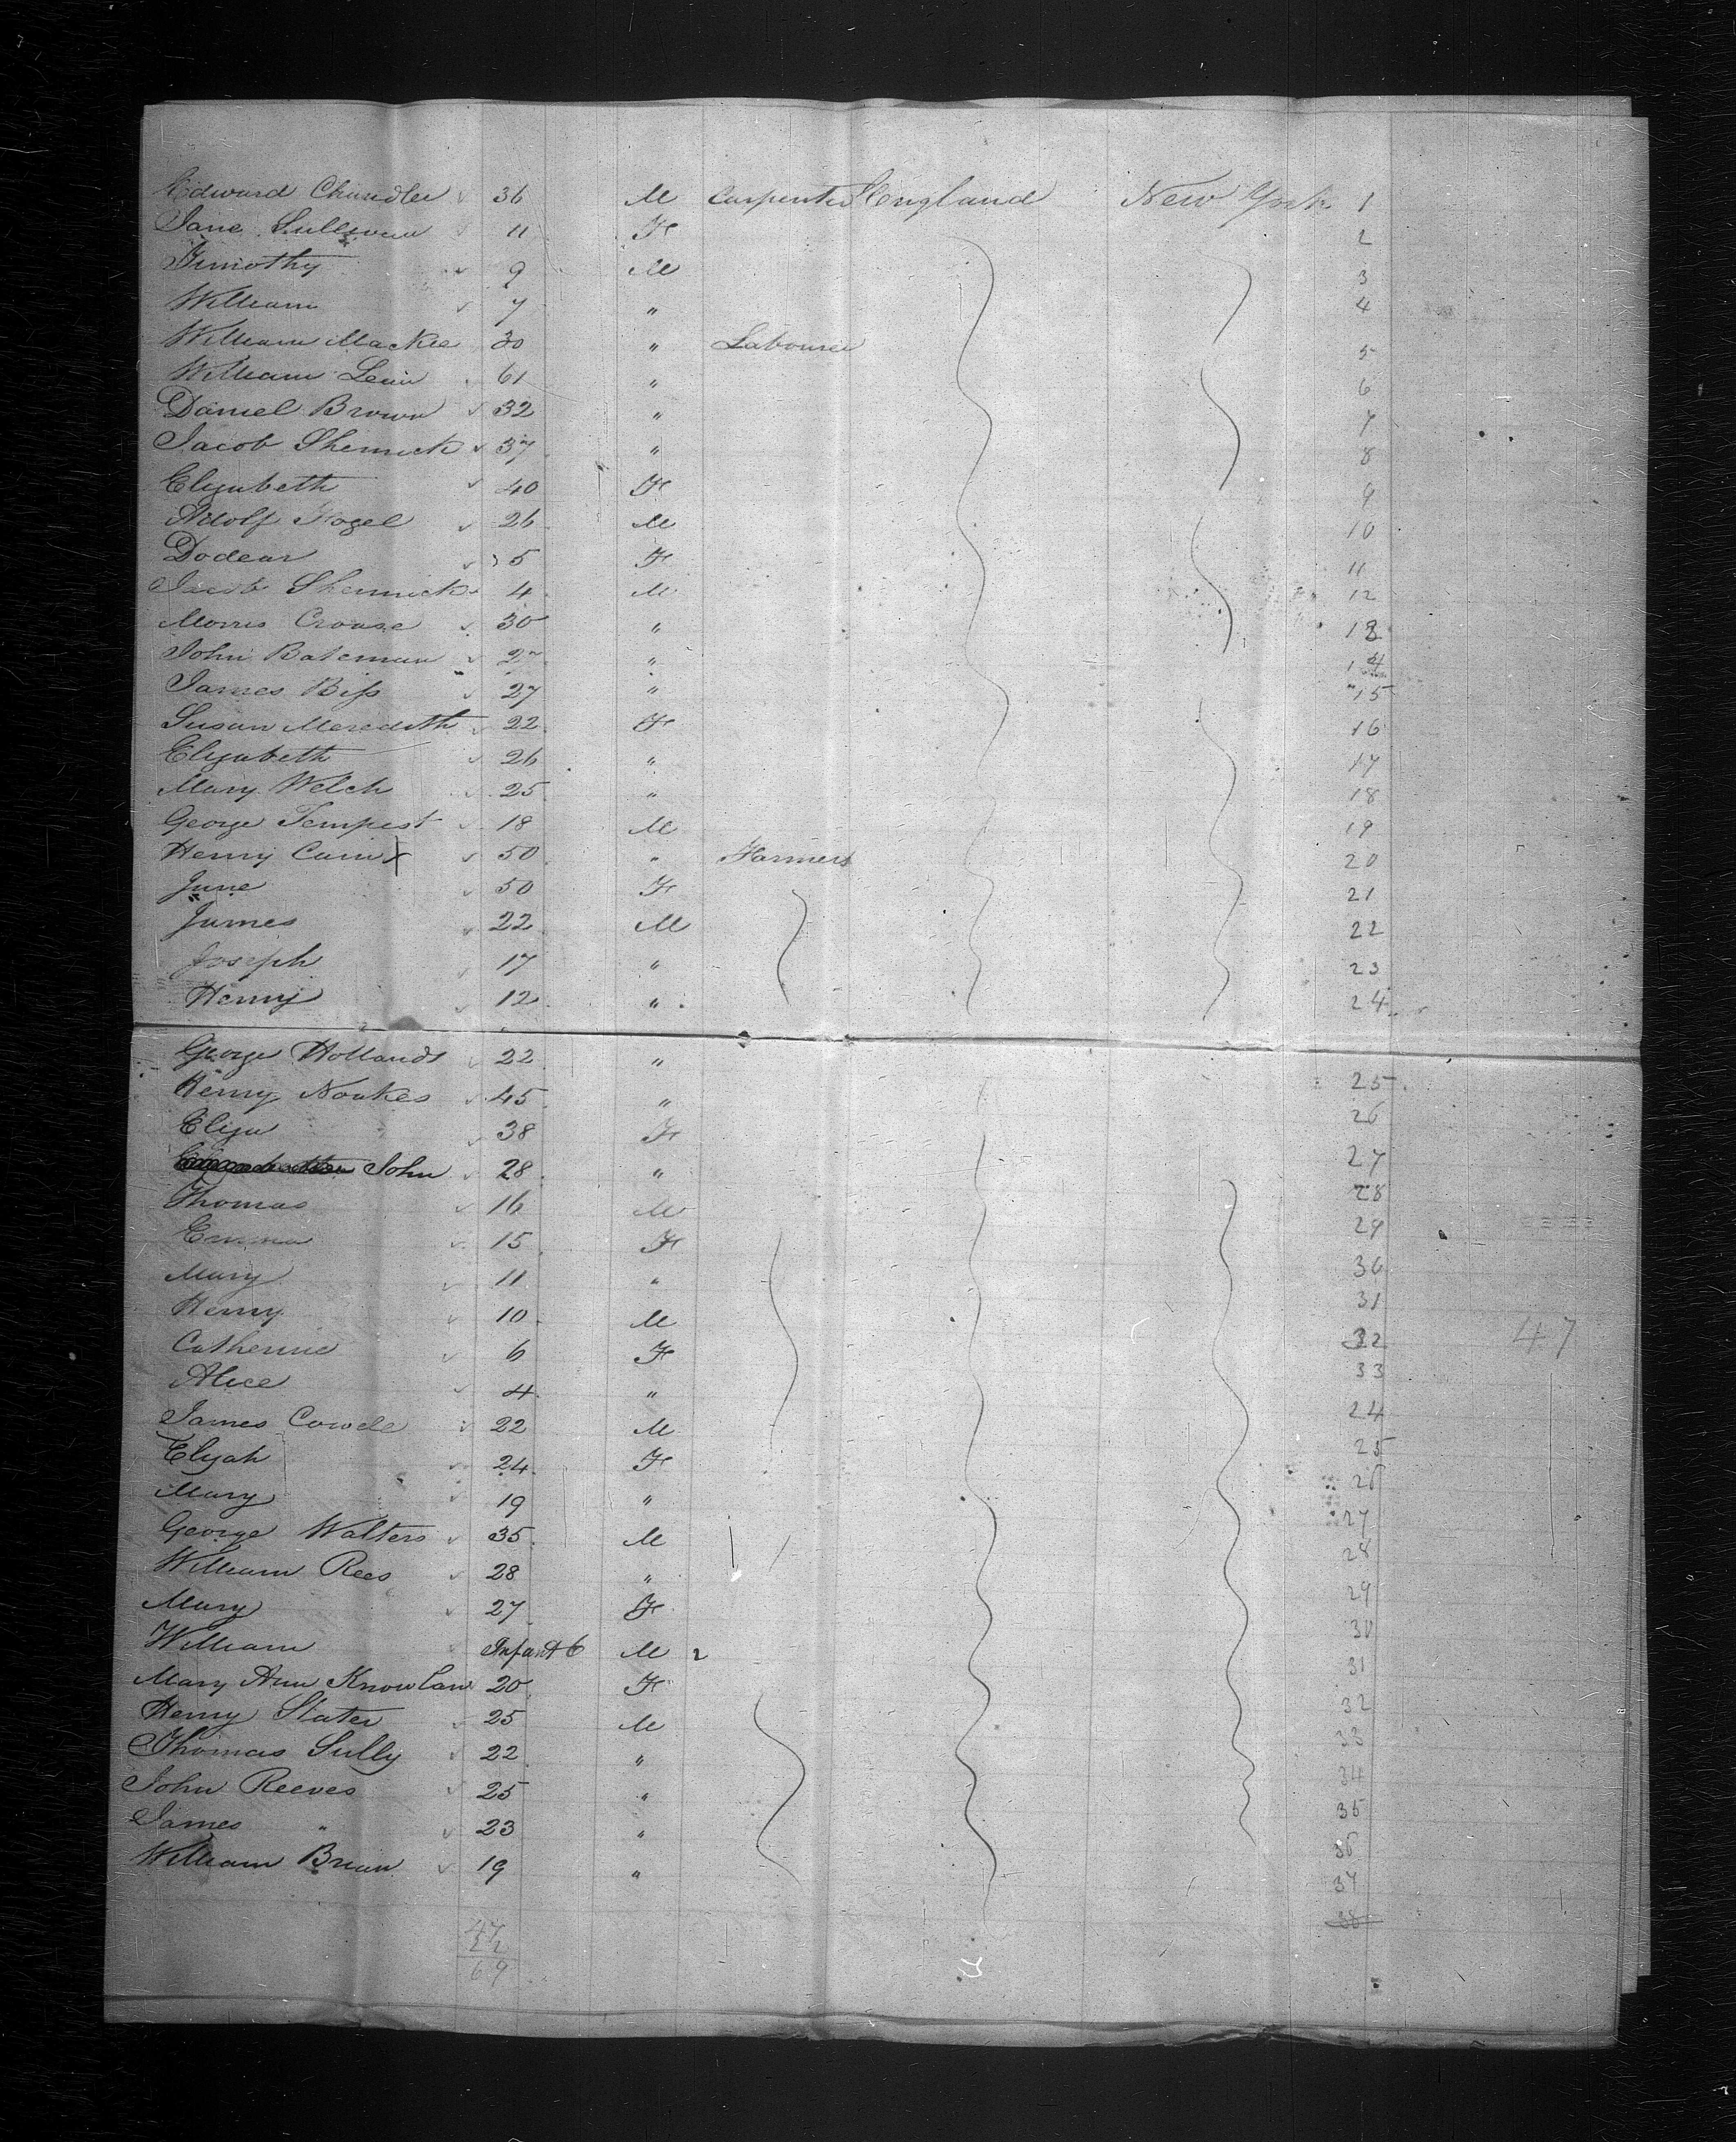 Edward Chandler 36 M Carpenter England New York 1
Jane Sullivan 11 F 2
Timothy 9 M 3
William 7 " 4
William Mackie 30 " Labourer 5
William Levin 61 " 6
Daniel Brown 32 " 7
Jacob Shemick 37 " 8
Elizabeth 40 F 9
Adolf 26 M 10
Dodear 5 F 11
Jacob Shemick 4 M 12
Morris Crouse 30 " 13
John Bateman " 14
James Biss 27 " 15
Susan Meredith 22 F 16
Elizabeth 26 " 17
Mary Welch 25 " 18
George Tempest 18 M 19
Henry Cain 50 " Farmers 20
June 50 F 21
James 22 M 22
Joseph 17 " 23
Henry 12 " 24
George Hollands 22 "
Henry Noakes 45 " 25
Eliza 38 F 26
John 28 " 27
Thomas 16 M 28
Emma 15 F 29
Mary 11 " 30
Henry 10 M 31
Catherine 6 F 32 47
Alice 4 " 33
James Cowell 22 M 24
Elijah 24 F 25
Mary 19 " 26
George Walters 35 M 27
William Rees 28 " 28
Mary 27 F 29
William Infant 6 M 2 30
Mary Ann Knowlan 20 F 31
Henry Slater 25 M 32
Thomas Sully 22 " 33
John Reeves 25 " 34
James " 23 " 35
William Brian 19 " 36
37
38
47
22
69